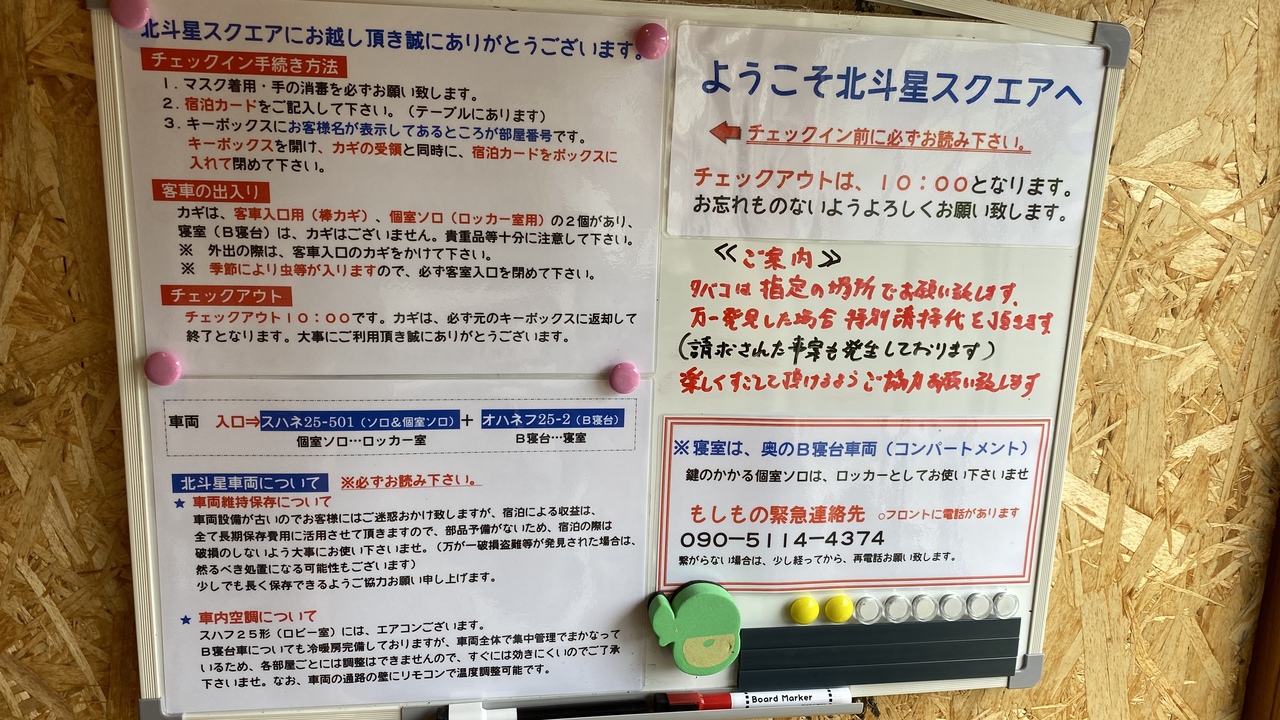 北斗星スクエアにお越し頂き誠にありがとうございます。
チェックイン手続き方法
1. マスク着用・手の消毒を必ずお願い致します。
2. 宿泊カードをご記入して下さい。（テーブルにあります）
3. キーボックスにお客様名が表示してあるところが部屋番号です。
キーボックスを開け、カギの受領と同時に、宿泊カードをボックスに
入れて閉めて下さい。
客車の出入り
カギは、客車入口用（棒カギ）、個室ソロ（ロッカー室用）の２個があり、
寝室（Ｂ寝台）は、カギはございません。貴重品等十分に注意して下さい。
※ 外出の際は、客車入口のカギをかけて下さい。
※ 季節により虫等が入りますので、必ず客室入口を閉めて下さい。
チェックアウト
チェックアウト１０：００です。カギは、必ず元のキーボックスに返却して
終了となります。大事にご利用頂き誠にありがとうございます。
車両 入口⇒スハネ25-501（ソロ&個室ソロ）＋ オハネフ25-2（Ｂ寝台）
個室ソロ…ロッカー室 Ｂ寝台…寝室
北斗星車両について ※必ずお読み下さい。
★ 車両維持保存について
車両設備が古いのでお客様にはご迷惑おかけ致しますが、宿泊による収益は、
全て長期保存費用に活用させて頂きますので、部品予備がないため、宿泊の際は
破損のしないよう大事にお使い下さいませ。（万が一破損盗難等が発見された場合は、
然るべき処置になる可能性もございます）
少しでも長く保存できるようご協力お願い申し上げます。
★ 車内空調について
スハフ２５形（ロビー室）には、エアコンございます。
Ｂ寝台車についても冷暖房完備しておりますが、車両全体で集中管理でまかなって
いるため、各部屋ごとには調整はできませんので、すぐには効きにくいのでご了承
下さいませ。なお、車両の通路の壁にリモコンで温度調整可能です。
ようこそ北斗星スクエアへ
チェックイン前に必ずお読み下さい。
チェックアウトは、１０：００となります。
お忘れものないようよろしくお願い致します。
≪ご案内≫
タバコは指定の場所でお願い致します、
万一発見した場合 特別清掃代を頂きます
（請求された事案も発生しております）
楽しくすごして頂けるようご協力お願い致します
※寝室は、奥のＢ寝台車両（コンパートメント）
鍵のかかる個室ソロは、ロッカーとしてお使い下さいませ
もしもの緊急連絡先 ○フロントに電話があります
090ー5114ー4374
繋がらない場合は、少し経ってから、再電話お願い致します。
Board Marker